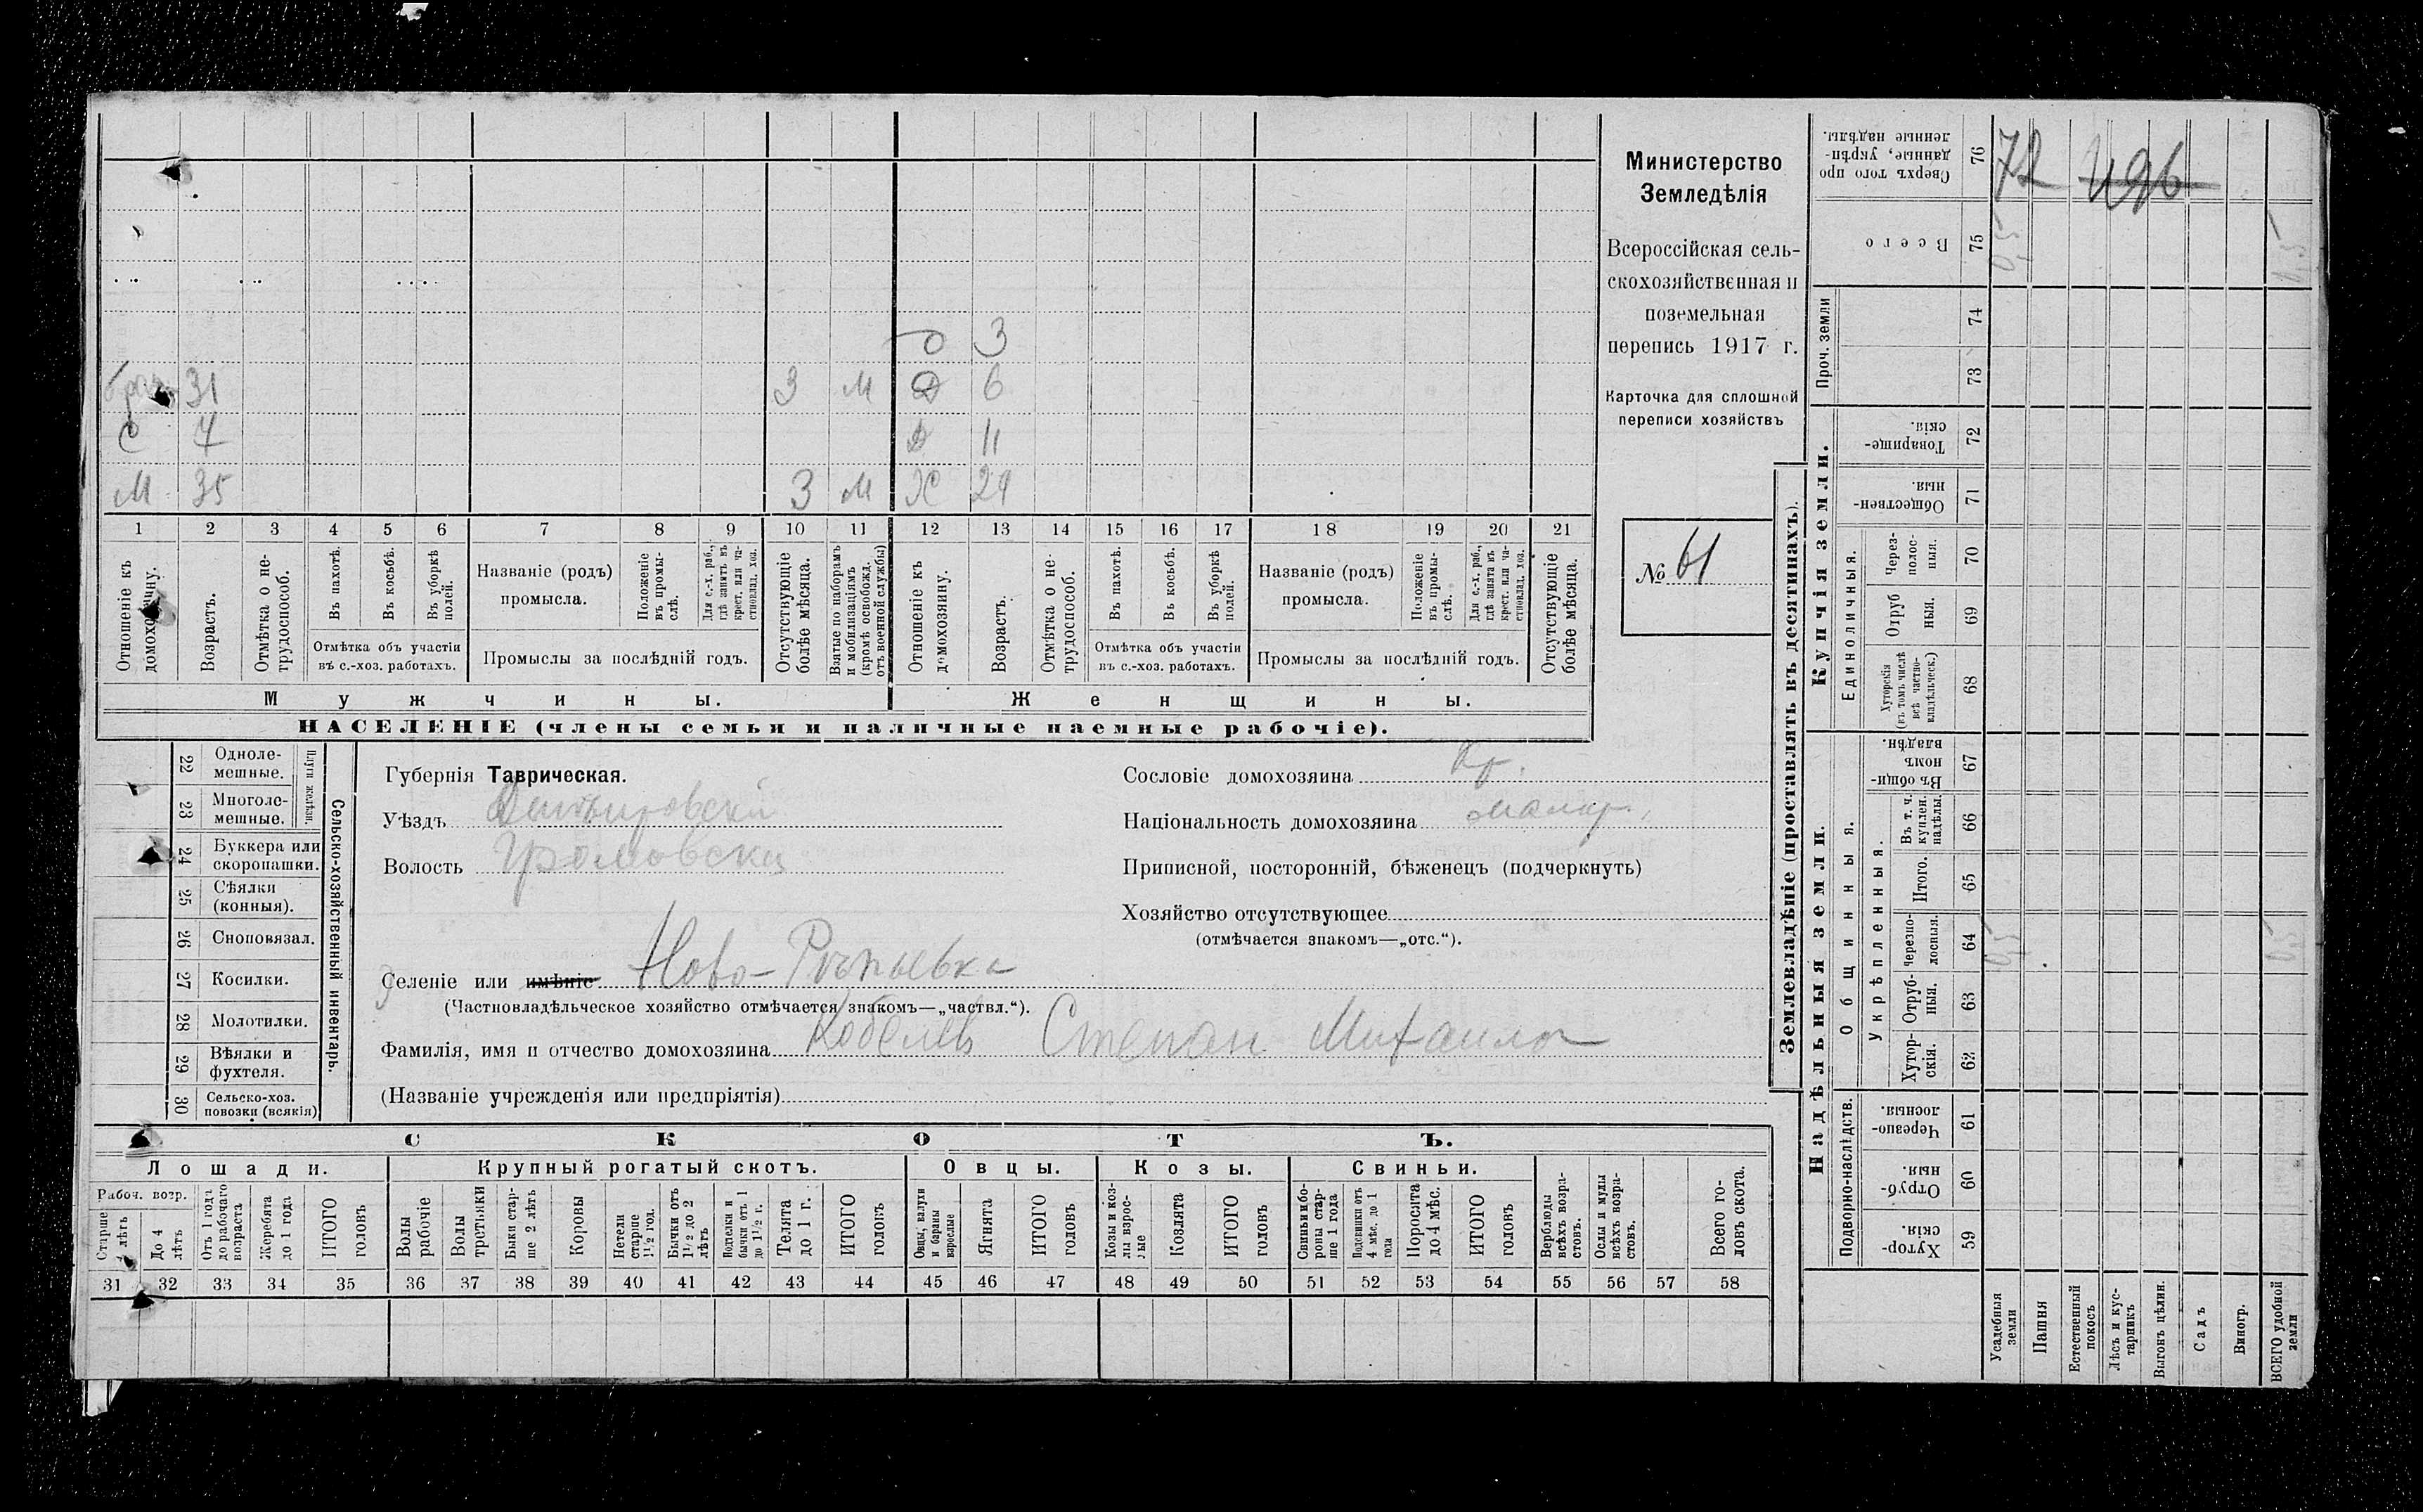 3
31 3 М Д 6
С 7 Д 11
М 35 3 М Ж 29
1 2 3 4 5 6 7 8 9 10 11 12 13 14 15 16 17 18 19 20 21
Отношеніе къ домохозяину.
Возрастъ.
Отмѣтка о не-
трудоспособ.
Въ пахотѣ.
Въ косьбѣ.
Въ уборкѣ
полей.
Отмѣтка объ участіи
въ с.-хоз. работахъ.
Названіе (родъ)
промысла.
Положеніе
въ промы-
слѣ.
Для с.-х. раб.,
гдѣ занятъ въ
крест. или ча-
стновлад. хоз.
Промыслы за послѣдній годъ.
Отсутствующіе
болѣе мѣсяца.
Взятые по наборамъ
и мобилизаціямъ
(кромѣ освобожд.
отъ военной службы)
Отношеніе къ
домохозяину.
Возрастъ.
Отмѣтка о не-
трудоспособ.
Въ пахотѣ.
Въ косьбѣ.
Въ уборкѣ
полей.
Отмѣтка объ участіи
въ с.-хоз. работахъ.
Названіе (родъ)
промысла.
Положеніе
въ промы-
слѣ.
Для с.-х. раб.,
гдѣ занята въ
крест. или ча-
стновлад. хоз.
Промыслы за послѣдній годъ.
Отсутствующіе
болѣе мѣсяца.
Мужчины.
Женщины.
НАСЕЛЕНІЕ (члены семьи и наличные наемные рабочіе).
Министерство
Земледѣлія
Всероссійская сель-
скохозяйственная и
поземельная
перепись 1917 г.
Карточка для сплошной
переписи хозяйствъ
№ 61
22 Одноле-
мешные.
23 Многоле-
мешные.
Плуги желѣзн.
24 Буккера или
скоропашки.
25 Сѣялки
(конныя).
26 Сноповязал.
27 Косилки.
28 Молотилки.
29 Вѣялки и
фухтеля.
30 Сельско-хоз.
повозки (всякія)
Сельско-хозяйственный инвентарь.
Губернія Таврическая.
Уѣздъ Днѣпровскій
Волость Громовска
Селеніе или имѣніе Ново-
(Частновладѣльческое хозяйство отмѣчается знакомъ—„частвл.“).
Фамилія, имя и отчество домохозяина Кобелевъ Степан Михаилов
(Названіе учрежденія или предпріятія)
Сословіе домохозяина Кр.
Національность домохозяина малор.
Приписной, посторонній, бѣженецъ (подчеркнуть)
Хозяйство отсутствующее
(отмѣчается знакомъ—„отс.“).
СКОТЪ.
Лошади.
Крупный рогатый скотъ.
Овцы.
Козы.
Свиньи.
Рабоч. возр.
Старше
лѣтъ
До 4
лѣтъ
Отъ 1 года
до рабочаго
возраста
Жеребята
до 1 года
ИТОГО
головъ
Волы
рабочіе
Волы
третьяки
Быки стар-
ше 2 лѣтъ
Коровы
Нетели
старше
1½ год.
Бычки отъ
1½ до 2
лѣтъ
Подтелки и
бычки отъ 1
до 1½ г.
Телята
до 1 г.
ИТОГО
головъ
Овцы, валухи
и бараны
взрослые
Ягнята
ИТОГО
головъ
Козы и коз-
лы взрос-
лые
Козлята
ИТОГО
головъ
Свиньи и бо-
ровы стар-
ше 1 года
Подсвинки отъ
4 мѣс. до 1
года
Поросята
до 4 мѣс.
ИТОГО
головъ
Верблюды
всѣхъ возра-
стовъ.
Ослы и мулы
всѣхъ возра-
стовъ.
Всего го-
ловъ скота.
31 32 33 34 35 36 37 38 39 40 41 42 43 44 45 46 47 48 49 50 51 52 53 54 55 56 57 58
Землевладѣніе (проставлять въ десятинахъ).
Надѣльныя земли.
Купчія земли.
Проч. земли
Подворно-наслѣдств.
Общинныя.
Укрѣпленныя.
Единоличныя.
Хутор-
скія. 59
Отруб-
ныя. 60
Черезпо-
лосныя. 61
Хутор-
скія. 62
Отруб-
ныя. 63
Черезпо-
лосныя. 64
Итого. 65
Въ т. ч.
куплен.
надѣлы. 66
Въ общин-
номъ
владѣн. 67
Хуторскія
(въ томъ числѣ
всѣ частно-
владѣльческ.) 68
Отруб
ныя. 69
Через-
полос-
ныя. 70
Обществен-
ныя. 71
Товарище-
скія. 72
73
74
Всего 75
Сверхъ того про
данные, укрѣп-
ленные надѣлы. 76
72
496
0,5 0,5
0,5 0,5
Усадебныя
земли
Пашня
Естественный
покосъ
Лѣсъ и кус-
тарникъ
Выгонъ цѣлин.
Садъ
Виногр.
ВСЕГО удобной
земли